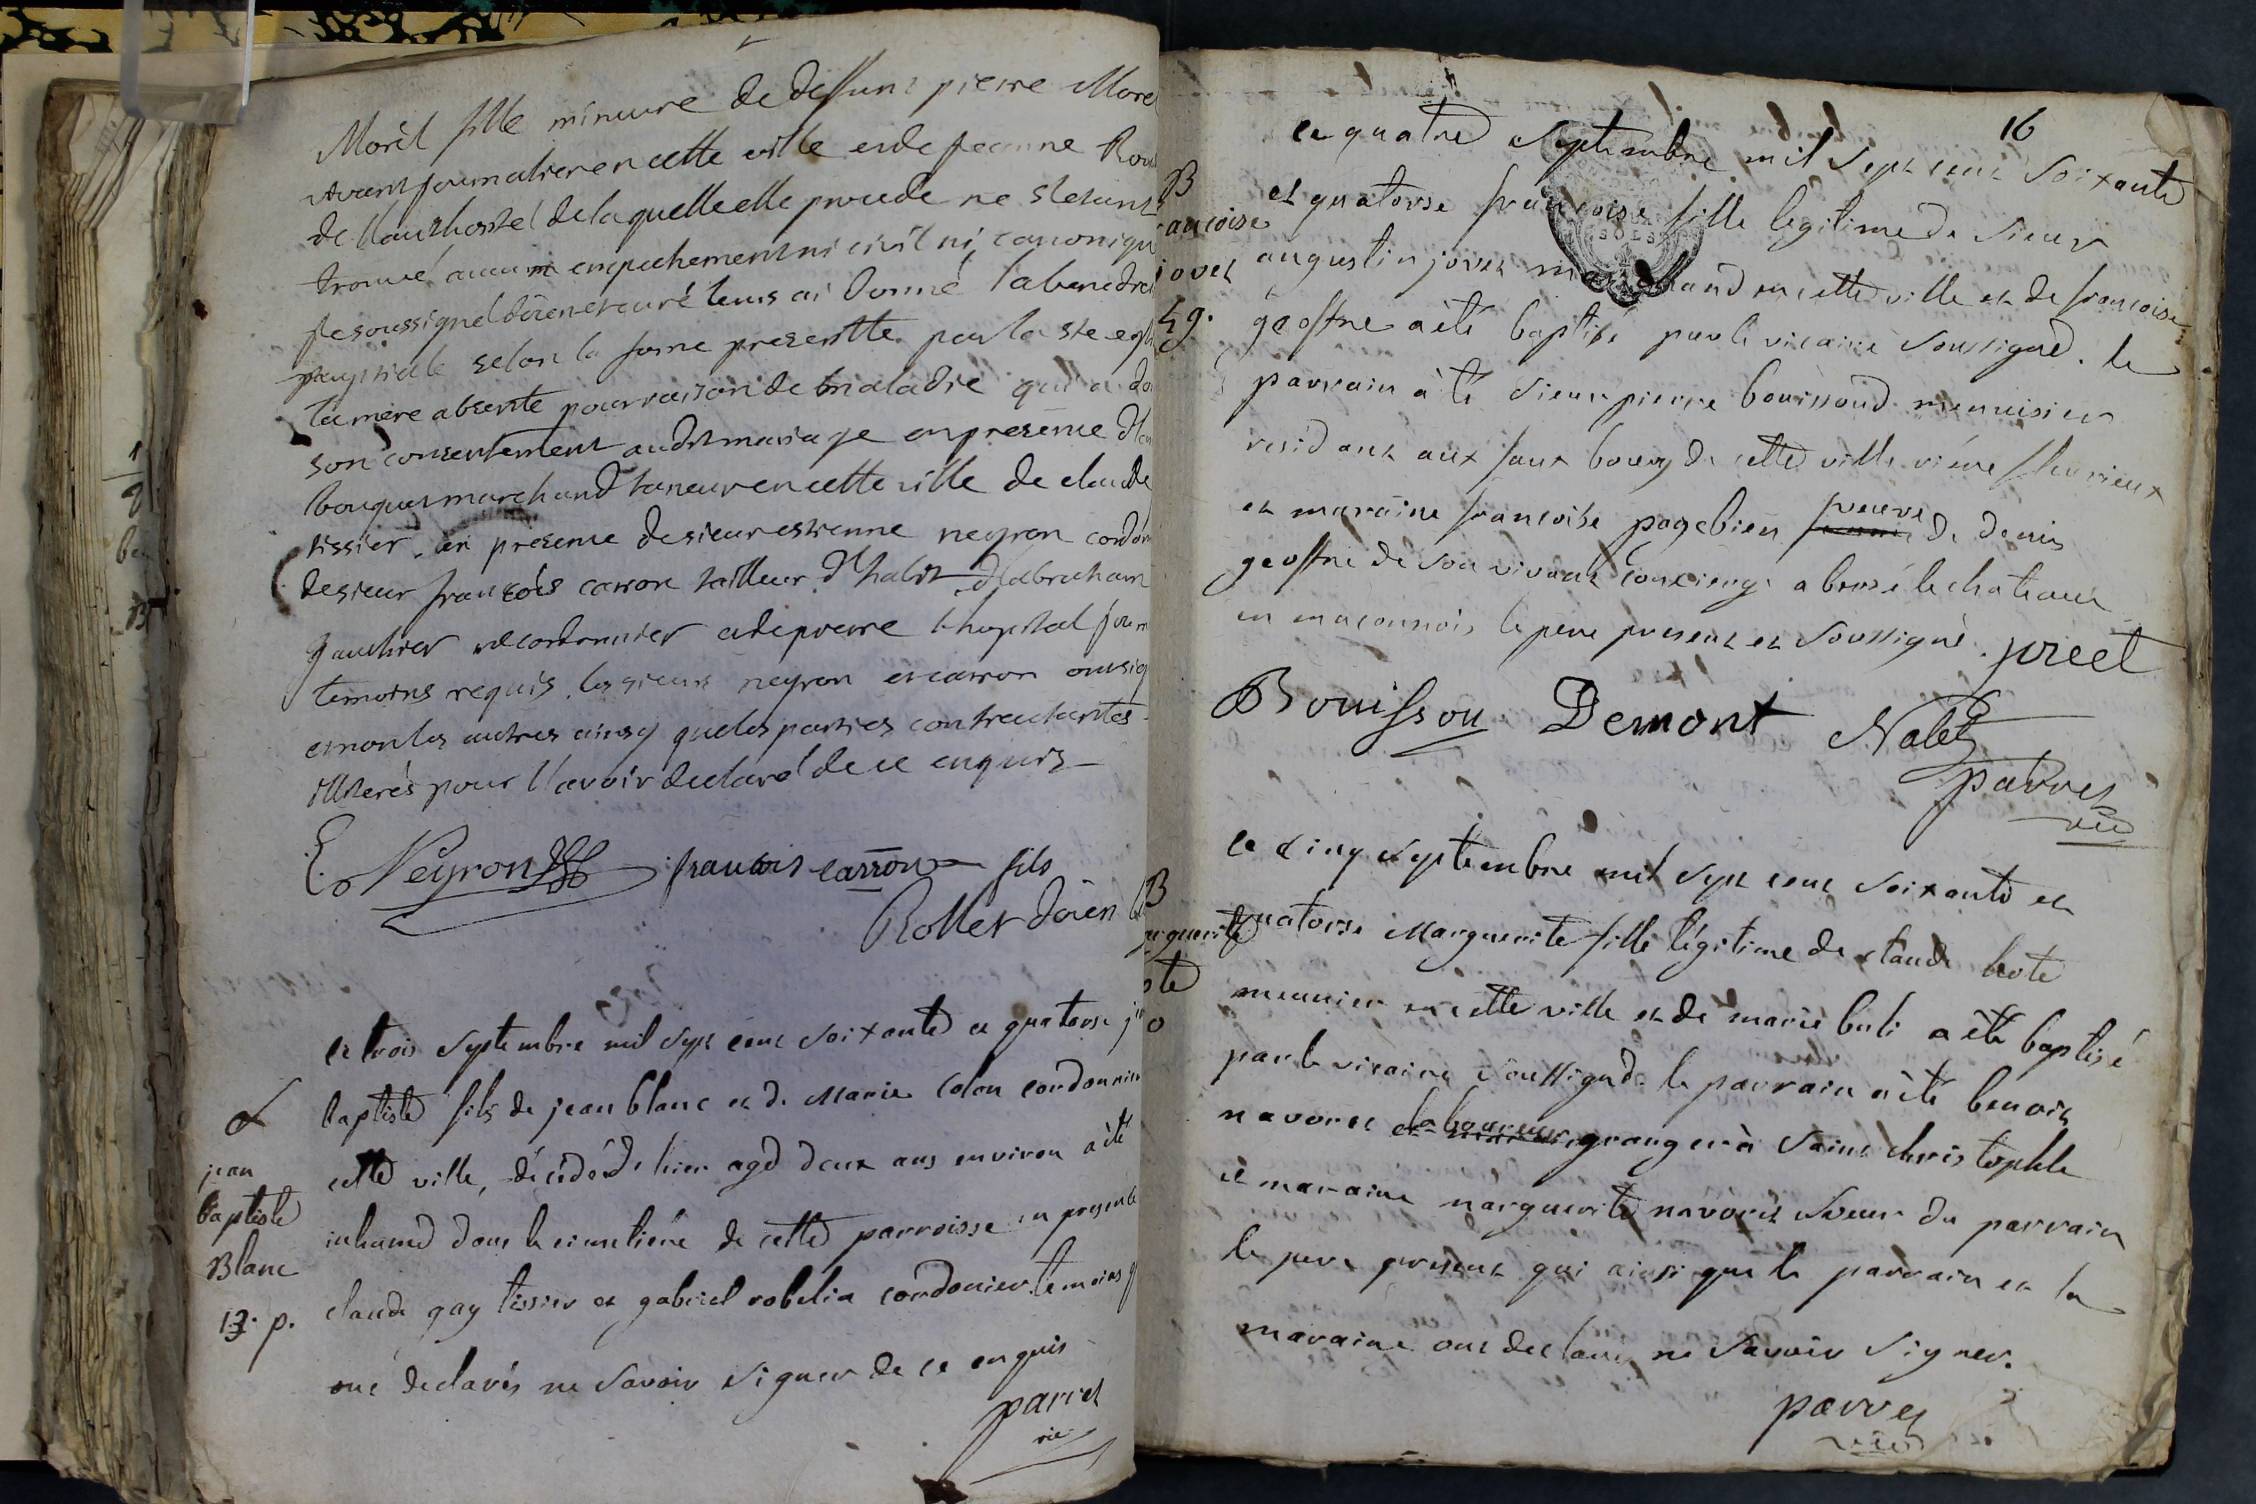 Morel fille mineure de deffunt pierre Morel
vivant journalier en cette ville et de jeanne Rou
de l'authorité de laquelle elle procede ne s'etant
trouvé aucun empechement ni civil ni canonique
je soussigné doien et curé leurs ai donné la benedic
selon la forme presentte par la ste egli
la mere absente pour raison de maladie qui a do
son consentement audit mariage en presence de
bouquet marchand taneur en cette ville de claude
tissier en presence de sieur estienne neyron cordon
de sieur françois carron tailleur d'habit d'abraham
gauthier cordonnier et de pierre l'hopital journ
temoins requis. les sieurs neyron et carron ont sig
et non les autres ainsy que les parties contractantes
illiterés pour l'avoir declaré de ce enquis
E. Neyron françois carron fils
Rollet doien
le trois septembre mil sept cent soixante et quatorse j
baptiste fils de jean blanc et de Marie Colon cordonnier
cette ville, décédé d'hier agé deux ans environ a èté
inhumé dans le cimetiére de cette parroisse en presence
claude gay tissier et gabriel robelin cordonier temoins q
ont declarés ne savoir signer de ce enquis
parret
vic
jean
baptiste
Blanc
13. p.
16
le quatre septembre mil sept cent soixante
et quatorse françoise fille legitime de sieur
augustin jovet marchand en cette ville et de françoise
geoffre a èté baptisé par le vicaire soussigné. le
parrain à èté sieur pierre bouissoud menuisier
residant aux faux bourg de cette ville
et maraine françoise pagebien veuve de denis
geoffre de son vivant concierge a le chateau
en maconnois le pere present et soussigné. jovet
Bouissou Demont Nalet
parret
vic
B
ançoise
jovet
49.
le cinq septembre mil sept cent soixante et
quatorse Marguerite fille légitime de claude
meunier en cette ville et de marie a èté baptisé
par le vicaire soussigné. le parrain a èté benoit
navoret laboureur granger à saint christophle
et maraine marguerite navoret soeur du parrain
le pere present qui ainsi que le parrain et la
maraine ont declaré ne savoir signer.
parret
vic
B
arguerite
ote
o